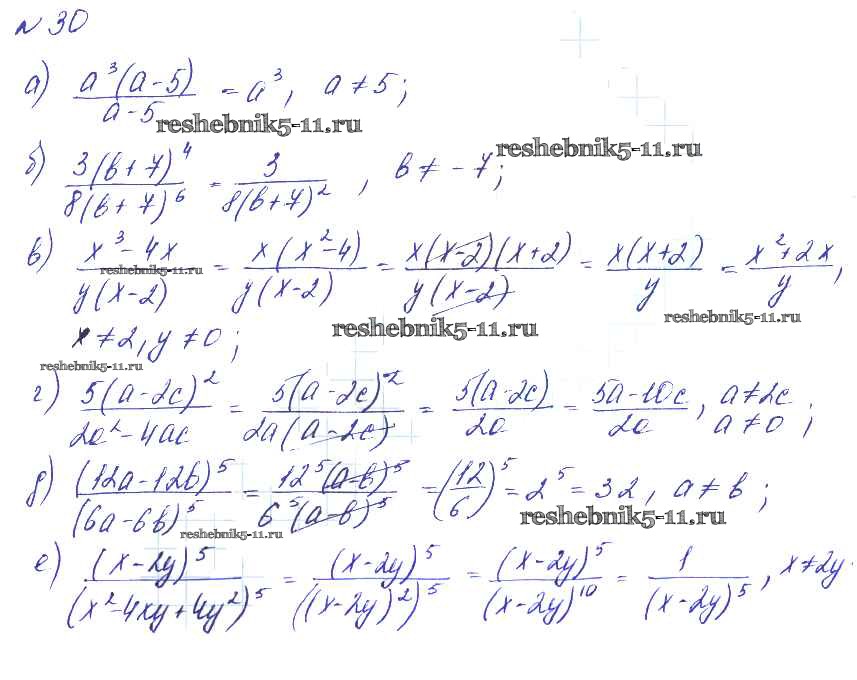 № 30
а) a³(a-5)/(a-5) = a³, a ≠ 5;
reshebnik5-11.ru
reshebnik5-11.ru
б) 3(b+7)⁴/8(b+7)⁶ = 3/8(b+7)², b ≠ -7;
в) (x³-4x)/y(x-2) = x(x²-4)/y(x-2) = x(x-2)(x+2)/y(x-2) = x(x+2)/y = (x²+2x)/y,
reshebnik5-11.ru
reshebnik5-11.ru
x ≠ 2, y ≠ 0;
reshebnik5-11.ru
reshebnik5-11.ru
г) 5(a-2c)²/(2a²-4ac) = 5(a-2c)²/2a(a-2c) = 5(a-2c)/2a = (5a-10c)/2a, a ≠ 2c a ≠ 0;
д) (12a-12b)⁵/(6a-6b)⁵ = 12⁵(a-b)⁵/6⁵(a-b)⁵ = (12/6)⁵ = 2⁵ = 32, a ≠ b;
reshebnik5-11.ru
reshebnik5-11.ru
е) (x-2y)⁵/(x²-4xy+4y²)⁵ = (x-2y)⁵/((x-2y)²)⁵ = (x-2y)⁵/(x-2y)¹⁰ = 1/(x-2y)⁵, x ≠ 2y.